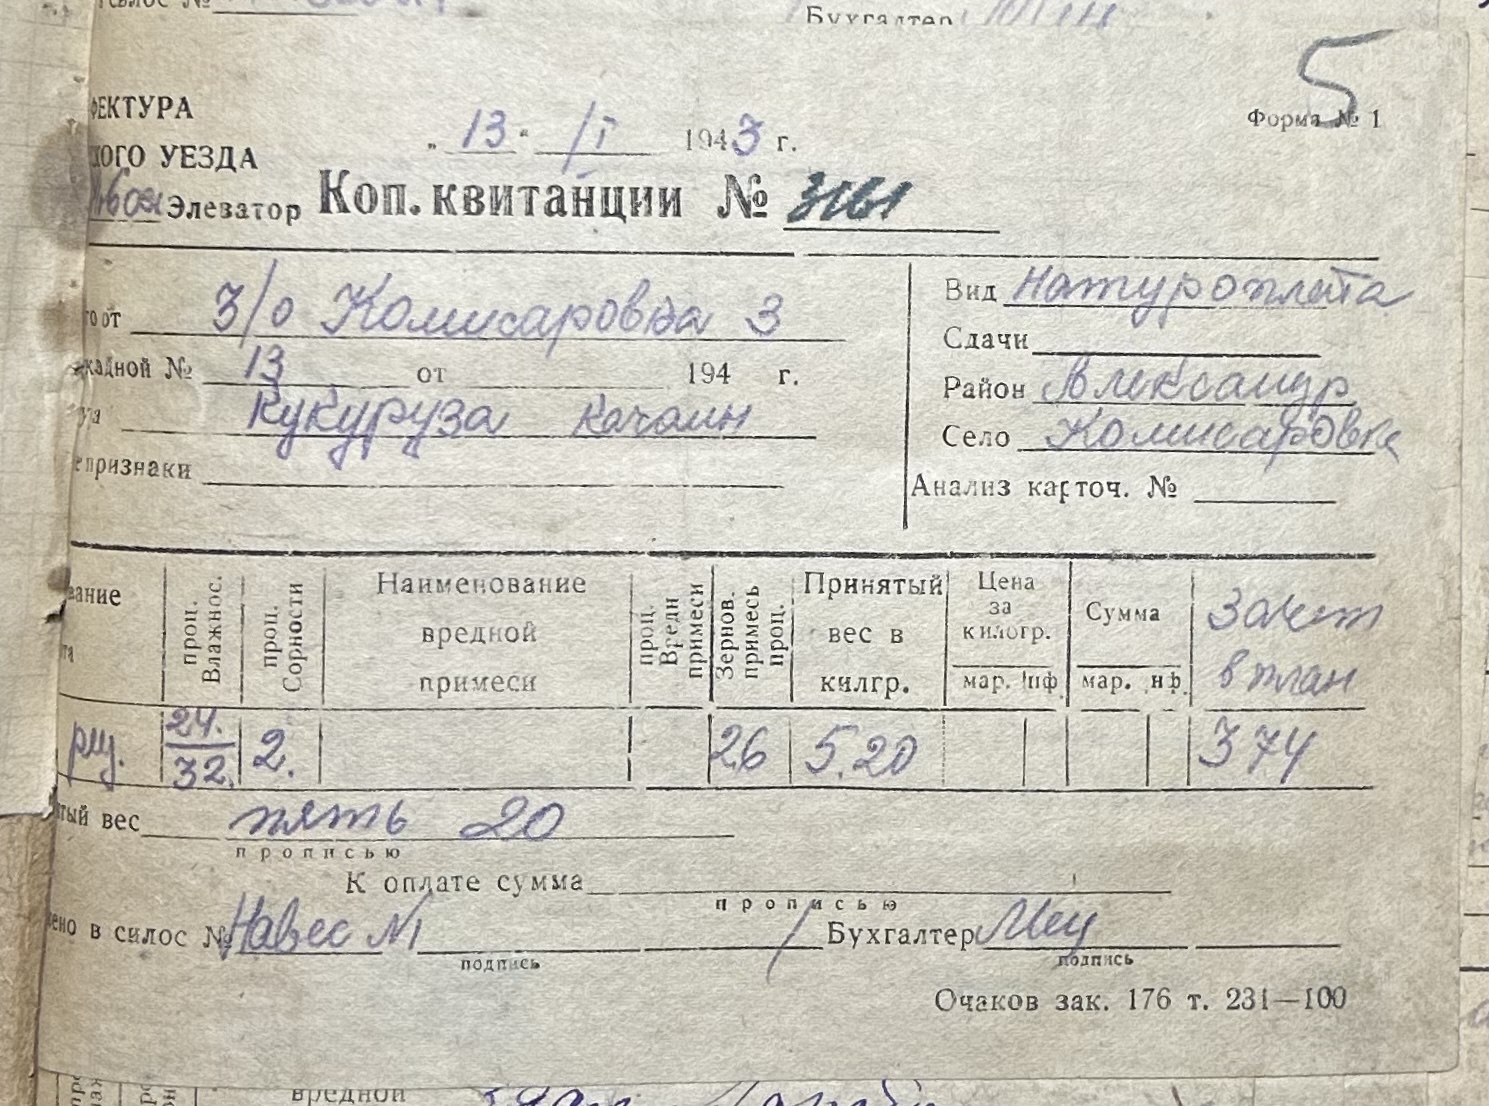 Бухгалтер
5
Форма № 1
ФЕКТУРА
КОГО УЕЗДА
„ 13 “ /I 1943 г.
Элеватор Коп. квитанции № 3161
то от З/о Комисаровка 3
кадной № 13 от 194 г.
Кукуруза качаин
е признаки
Вид Натуроплата
Сдачи
Район Александр
Село Комисаровка
Анализ карточ. №
вание
та
проц. Влажнос.
проц. Сорности
Наименование вредной примеси
проц. Вредн примеси
Зернов. примесь проц.
Принятый вес в килгр.
Цена за килогр.
мар. пф.
Сумма
мар. пф.
Зачет в план
рщ. 24. 32. 2. 26 5.20 374
тый вес пять 20
прописью
К оплате сумма
прописью
ено в силос № Навес №1 Бухгалтер
подпись подпись
Очаков зак. 176 т. 231—100
вредной